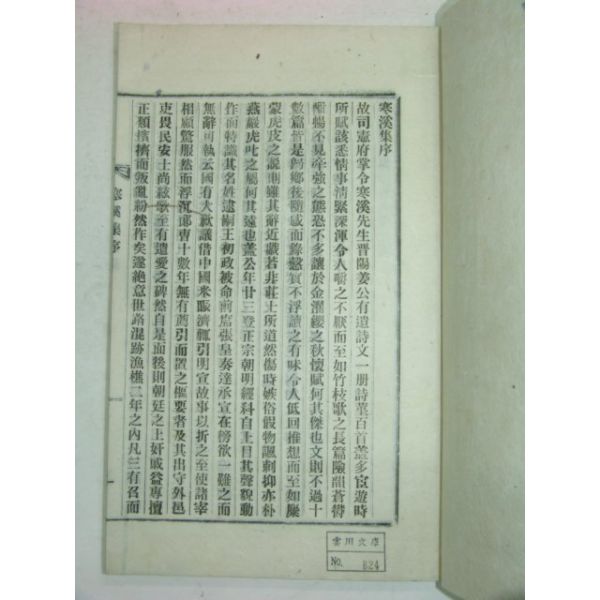 寒溪集序
故司憲府掌令寒溪先生晋陽姜公有遺詩文一册詩葉百首盖多宦遊時
所賦該悉情事淸緊深渾令人嚼之不厭而至如竹枝歌之長篇險韻蒼傳
暢不見牽強之態恐不多讓於金濯纓之秋懷賦何其傑也文則不過十
數篇皆是歸鄕後隨感而錄慤實不浮讀之有味令人低回推想而至如
蒙虎皮之說則雖其辭近戱若非莊士所道然傷時嫉俗假物諷刺抑亦朴
燕巖虎叱之屬何其遠也盖公年廿三登正宗朝明經科自上目其聲貌動
作而特識其名姓逮嗣王初政被命前席張皇奏達承宣在傍欲一難之而
無辭可執云國有大歉議借中國米賑濟輒引明宣故事以折之至使諸宰
相顧驚服然而浮沉郞曹十數年無有薦引而置之樞要者及其出守外邑
吏畏民安士尚絃歌至有遺愛之碑然自是而後則朝廷之上奸戚益專擅
正類擯擠而叛亂紛然作矣遂絶意世路混跡漁樵二年之內凡三有召而
寒溪集序
雲用文庫
No. B24